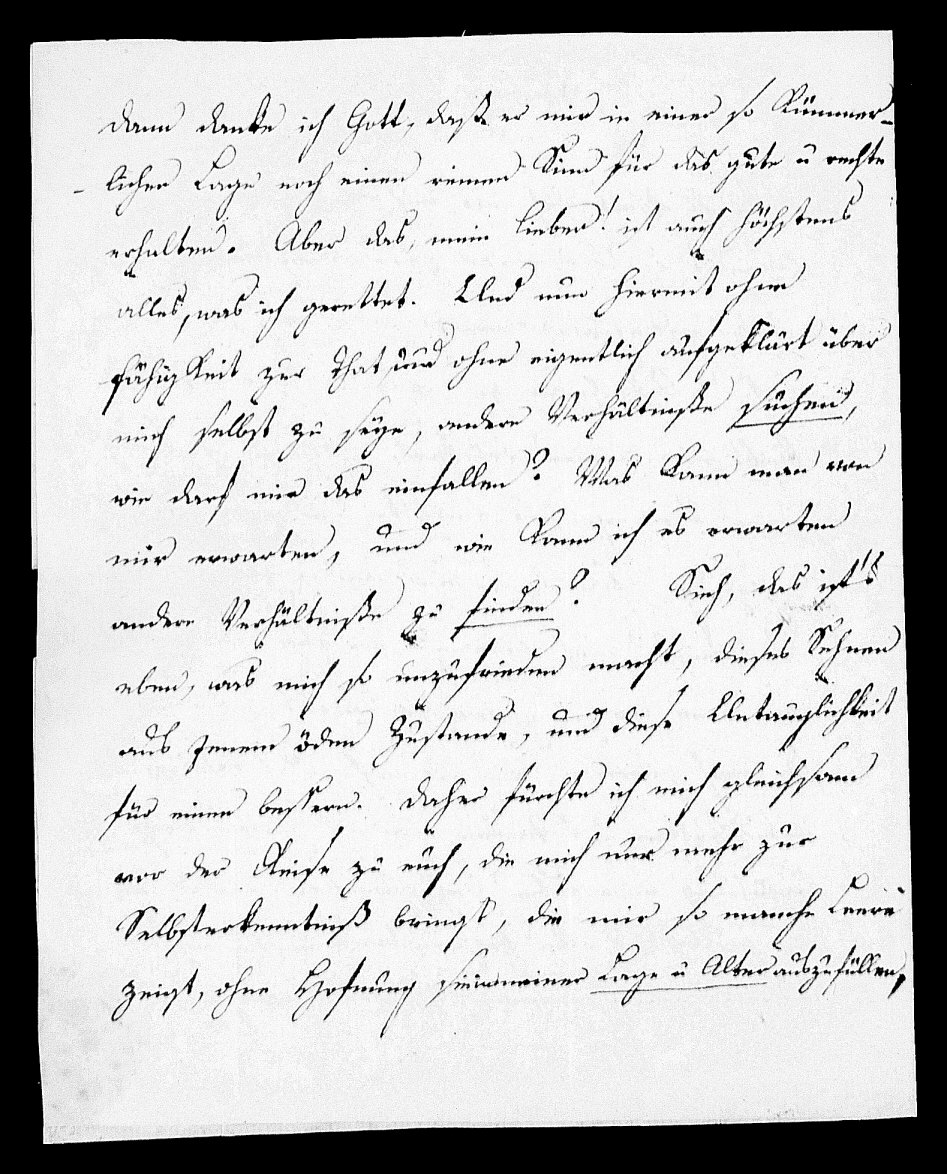 Dann danke ich Gott, daß er mir in einer so kümmer-
-licher Lage noch einen reinen Sinn für das gute u rechte
erhalten. Aber das, mein lieber! ist auch höchstens
alles, was ich gerettet. Und nun hiermit ohne
Fähigkeit zur That und ohne eigentlich aufgeklärt über
mich selbst zu seyn, andere Verhältniße suchen,
wie darf mir das einfallen? Was kann man von
mir erwarten, und wie kann ich es erwarten
andere Verhältniße zu finden? Sieh, das ist's
eben, was mich so unzufrieden macht, dieses Sehnen
aus jenem öden Zustande, und diese Untauglichkeit
für einen bessern. Daher fürchte ich mich gleichsam
vor der Reise zu euch, die mich nur mehr zur
Selbsterkenntniß bringt, die mir so manche Leere
zeigt, ohne Hofnung sie in meiner Lage u Alter auszufüllen,